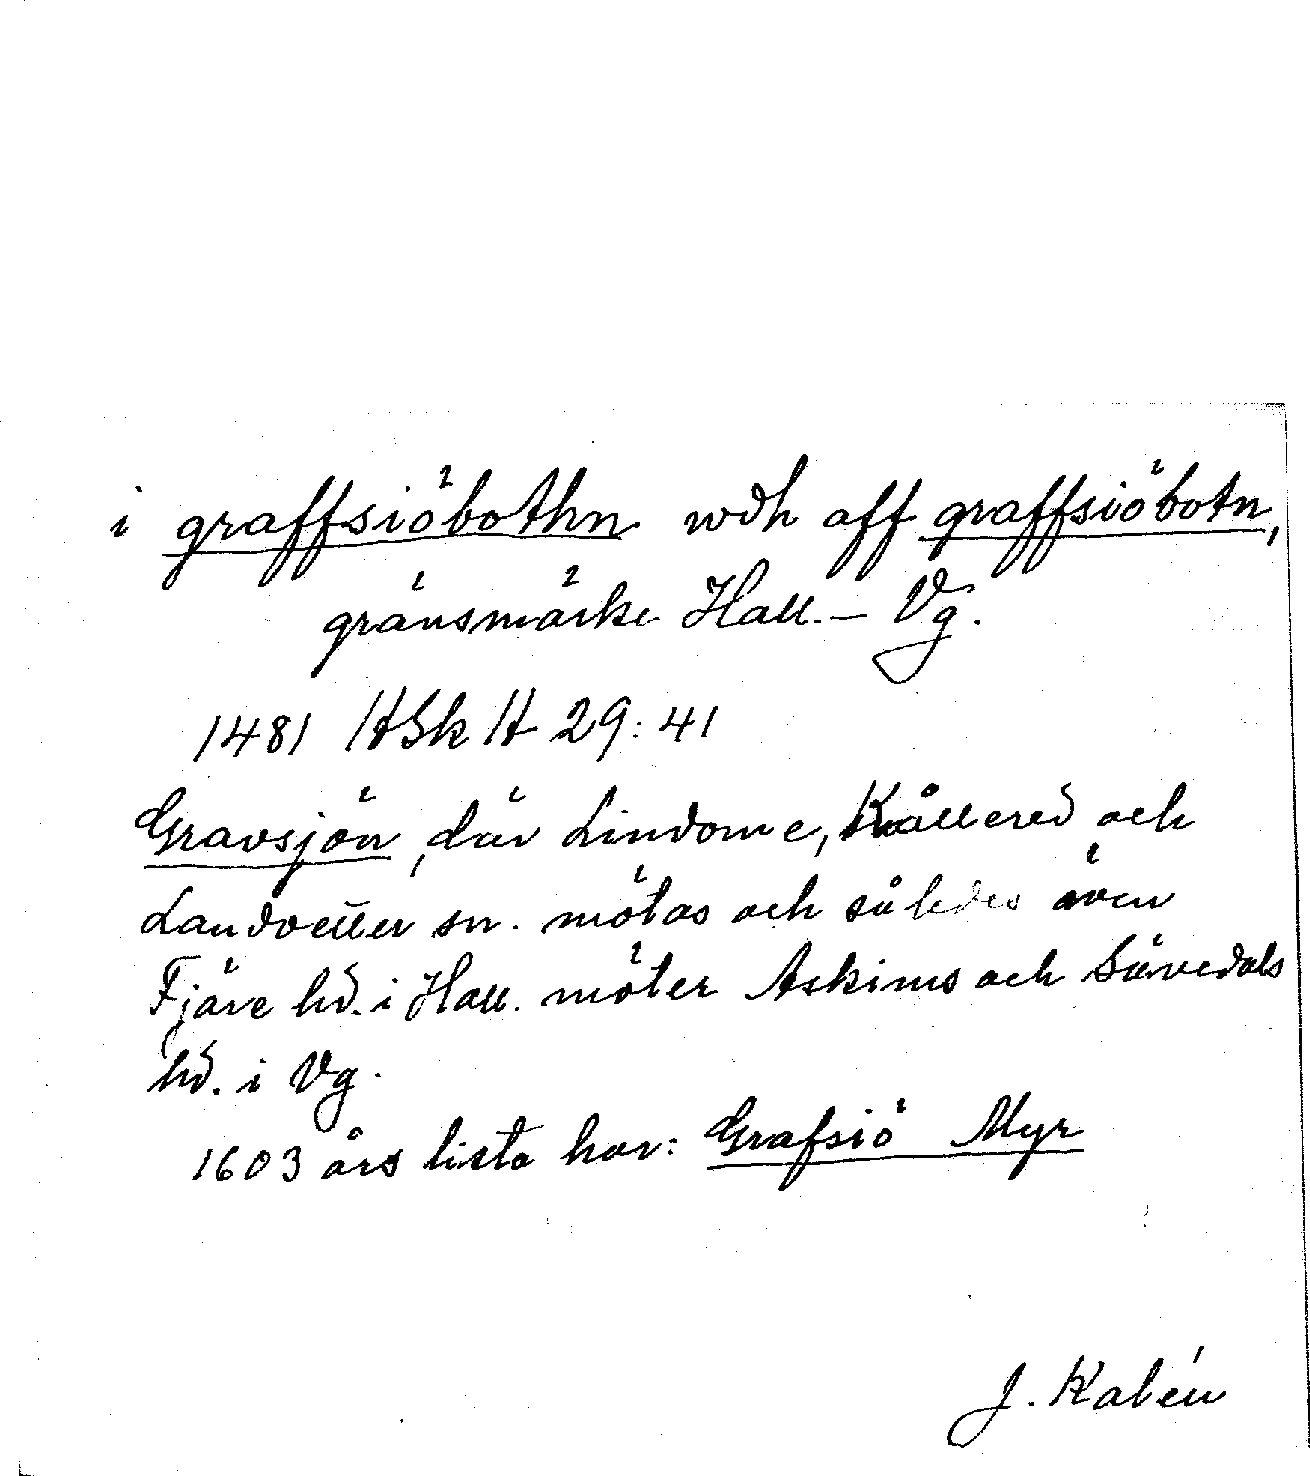 i graffsiöbothn wdh aff graffsiöbotn,
gränsmärke Hall. – Vg.
1481 HSk H 29:41
Gravsjön, där Lindome, Kållered och
Landvetter sn. mötas och således även
Fjäre hd. i Hall. möter Askims och Sävedals
hd. i Vg.
1603 års lista har: Grafsiö Myr
J. Kalén